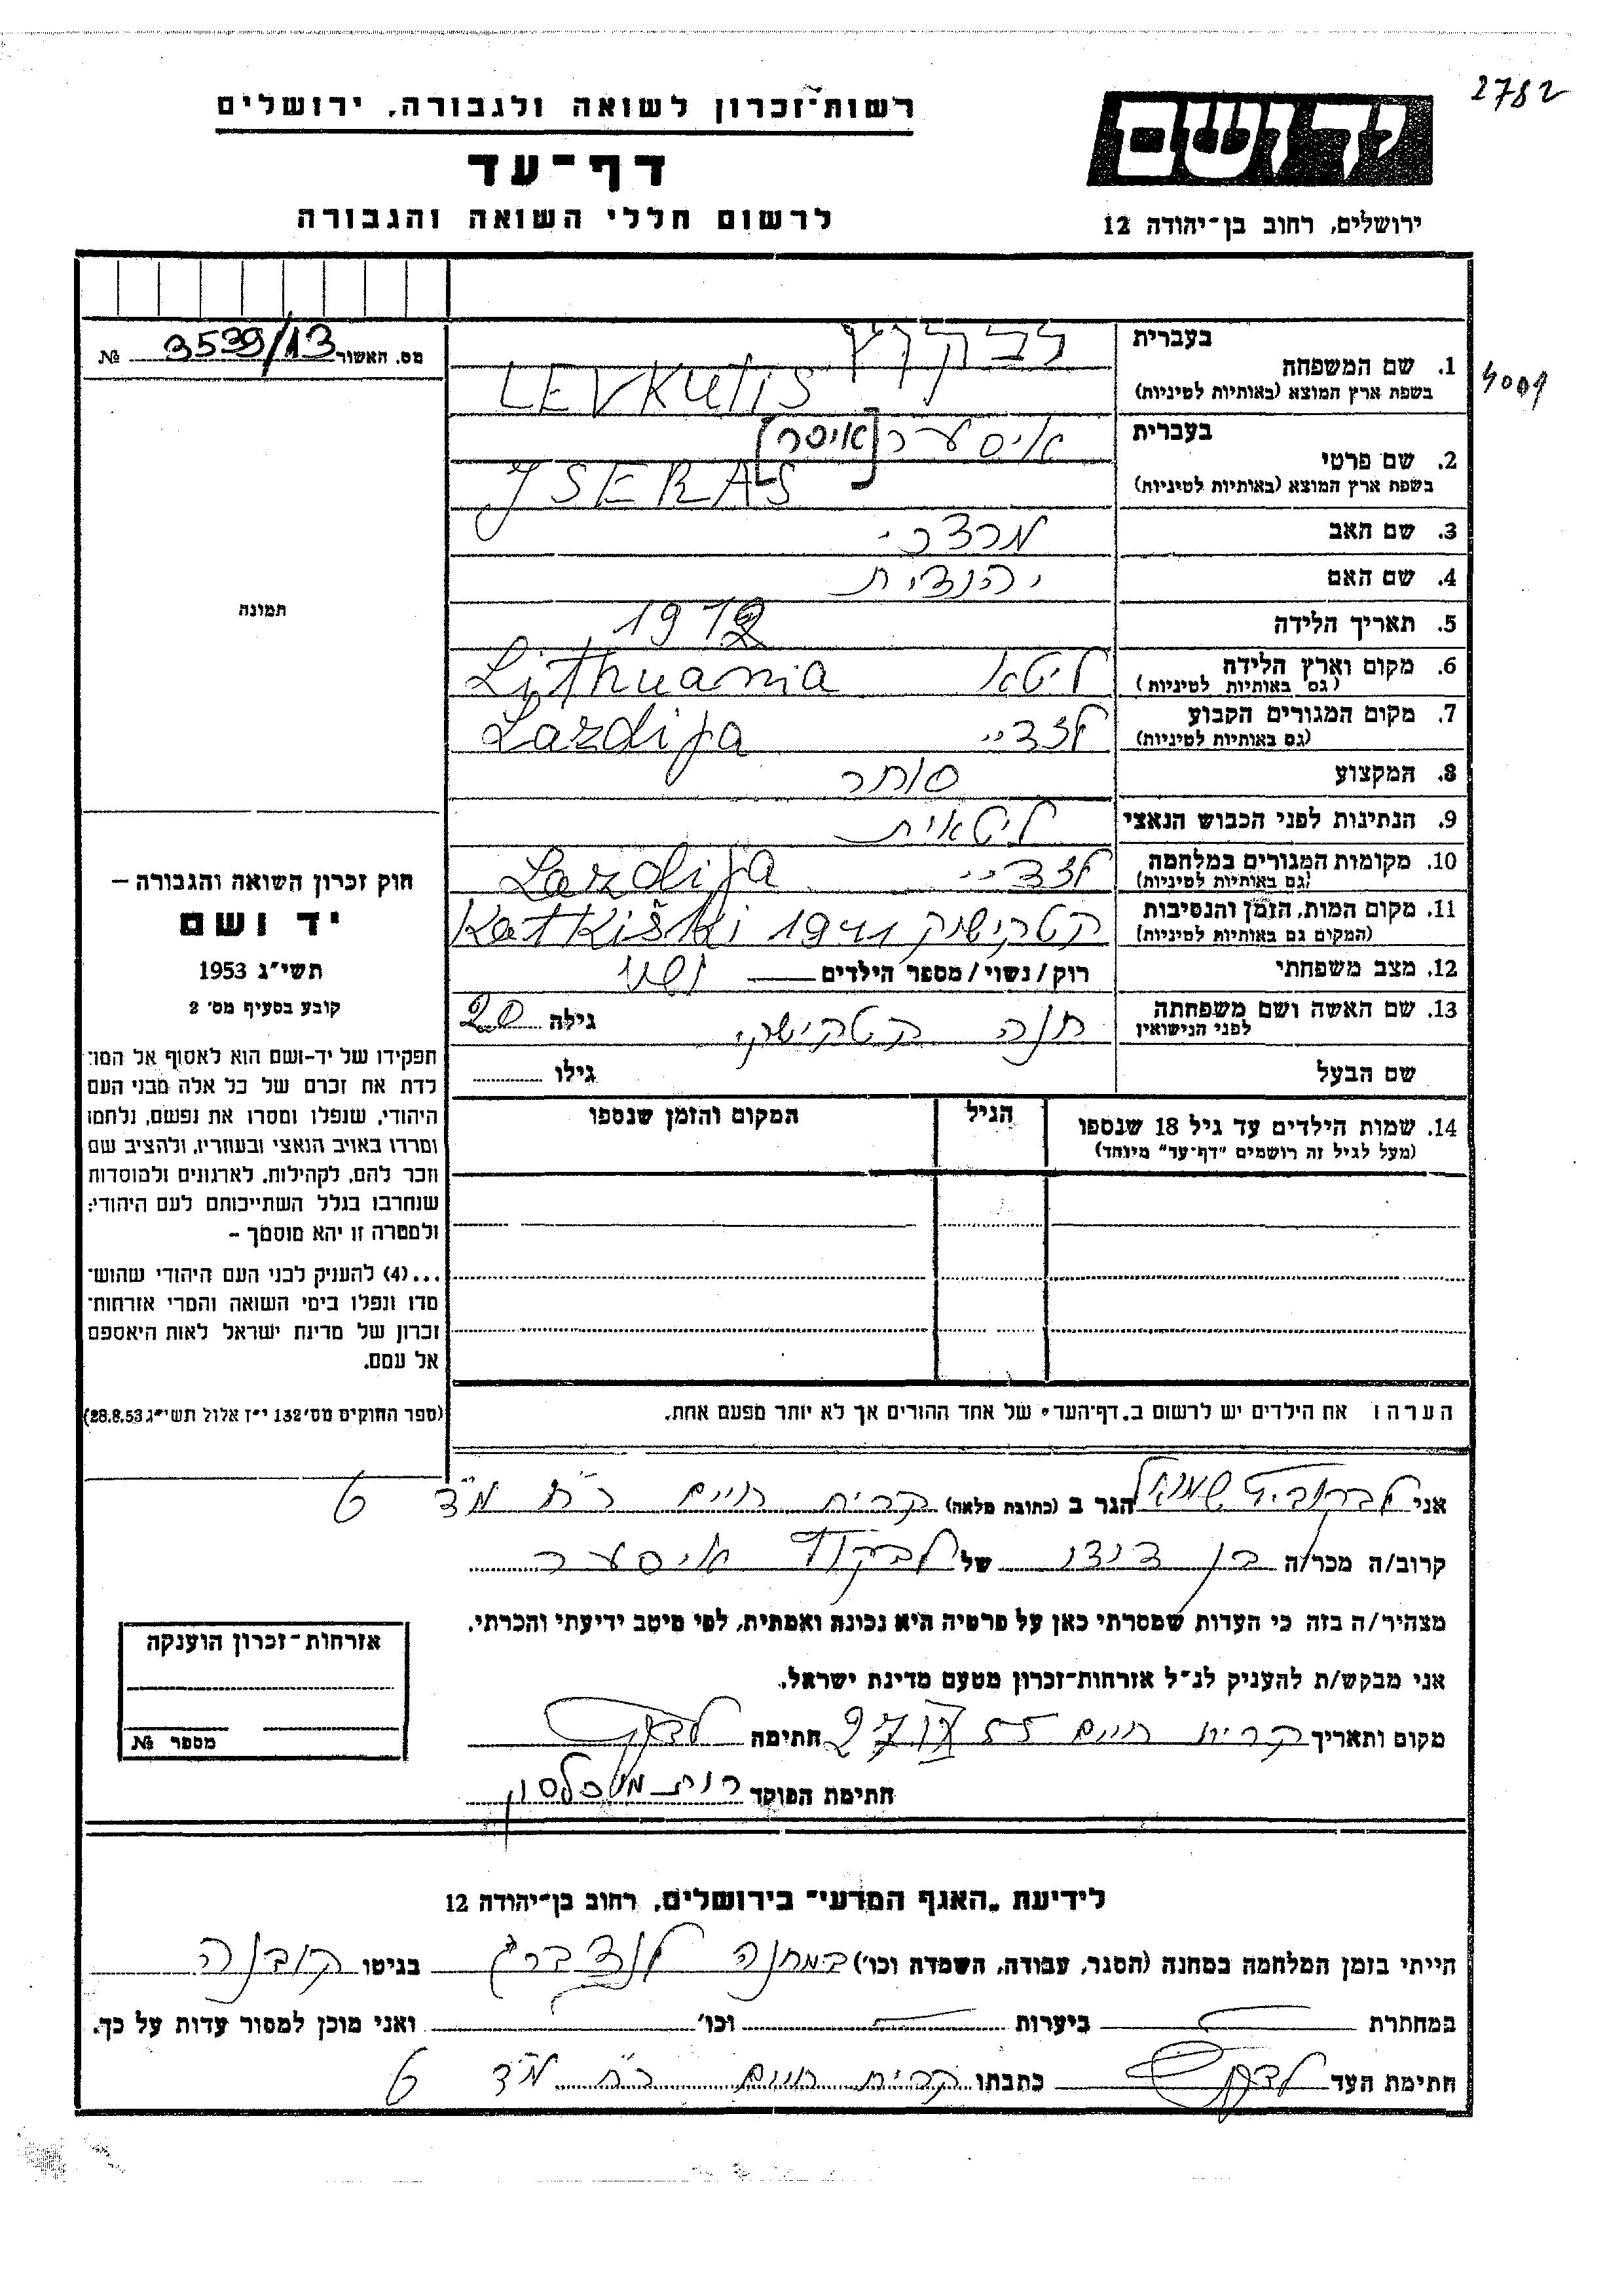 2782
רשות־זכרון לשואה ולגבורה, ירושלים
יד ושם
דף־עד
לרשום חללי השואה והגבורה
ירושלים, רחוב בן־יהודה 12
מס. האשור 3539/13 №
1. שם המשפחה
בעברית
בשפת ארץ המוצא (באותיות לטיניות) LEVKUTIS
4009
2. שם פרטי
בעברית איסער [איסר]
בשפת ארץ המוצא (באותיות לטיניות) ISERAS
3. שם האב מרדכי
4. שם האם יהודית
5. תאריך הלידה 1912
6. מקום וארץ הלידה (גם באותיות לטיניות) ליטא Lithuania
7. מקום המגורים הקבוע (גם באותיות לטיניות) לזדיי Lazdija
8. המקצוע סוחר
9. הנתינות לפני הכבוש הנאצי ליטאית
10. מקומות המגורים במלחמה (גם באותיות לטיניות) לזדיי Lazdija
11. מקום המות, הזמן והנסיבות (המקום גם באותיות לטיניות) קטקישוק 1941 Katkiški
12. מצב משפחתי רוק/נשוי/מספר הילדים נשוי
13. שם האשה ושם משפחתה לפני הנישואין חנה קטקישקי גילה 20
שם הבעל גילו
14. שמות הילדים עד גיל 18 שנספו הגיל המקום והזמן שנספו
(מעל לגיל זה רושמים "דף־עד" מיוחד)
תמונה
חוק זכרון השואה והגבורה –
יד ושם
תשי"ג 1953
קובע בסעיף מס׳ 2
תפקידו של יד־ושם הוא לאסוף אל המו־
לדת את זכרם של כל אלה מבני העם
היהודי, שנפלו ומסרו את נפשם, נלחמו
ומרדו באויב הנאצי ובעוזריו, ולהציב שם
וזכר להם, לקהילות, לארגונים ולמוסדות
שנחרבו בגלל השתייכותם לעם היהודי:
ולמטרה זו יהא מוסמך –
...(4) להעניק לבני העם היהודי שהוש־
מדו ונפלו בימי השואה והמרי אזרחות־
זכרון של מדינת ישראל לאות היאספם
אל עמם.
(ספר החוקים מס׳ 132 י"ז אלול תשי"ג 28.8.53)
הערה: את הילדים יש לרשום ב„דף־העד" של אחד ההורים אך לא יותר מפעם אחת.
אני לבקוביץ שמואל הגר ב (כתובת מלאה) קרית חיים
קרוב/ה מכר/ה בן דודו של איסער
מצהיר/ה בזה כי העדות שמסרתי כאן על פרטיה היא נכונה ואמתית, לפי מיטב ידיעתי והכרתי.
אני מבקש/ת להעניק לנ"ל אזרחות־זכרון מטעם מדינת ישראל.
מקום ותאריך קרית חיים 27 55 חתימה
חתימת הפוקד רות
אזרחות־זכרון הוענקה
מספר №
לידיעת „האגף המדעי" בירושלים, רחוב בן־יהודה 12
הייתי בזמן המלחמה במחנה (הסגר, עבודה, השמדה וכו׳) במחנה לנדברג בגיטו קובנה
במחתרת ביערות וכו׳ ואני מוכן למסור עדות על כך.
חתימת העד כתבתו קרית חיים